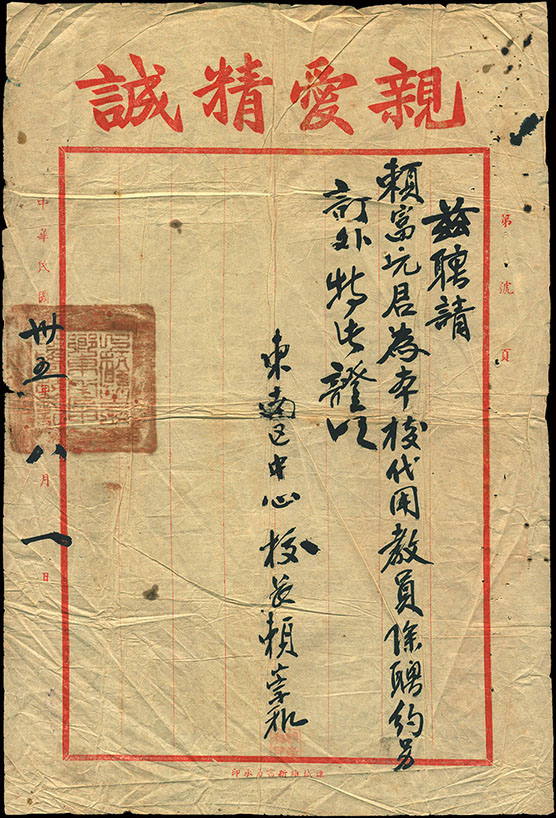 親愛精誠
第 號 頁
茲聘請
賴富元君為本校代用教員除聘約另
訂外特此證明
東南區中心校長賴崇和
中華民國卅五年八月一日